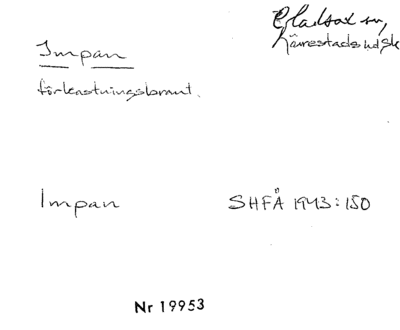 Gladsax sn,
Järrestads hd Sk
Impan
förkastningsbrant.
Impan
SHFÅ 1943:150
Nr 19953